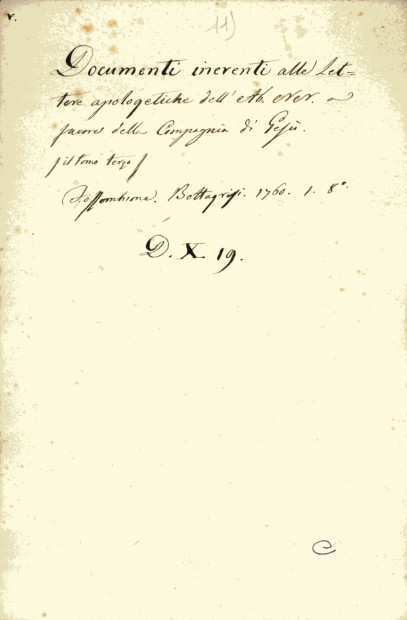 v.
11)
Documenti inerenti alle Let-
tere apologetiche dell'Ab. N.N. a
favore della Compagnia di Gesù.
/il tomo terzo/
Fossombrone. Bottagrisi. 1760. 1. 8°.
D. X. 19.
C